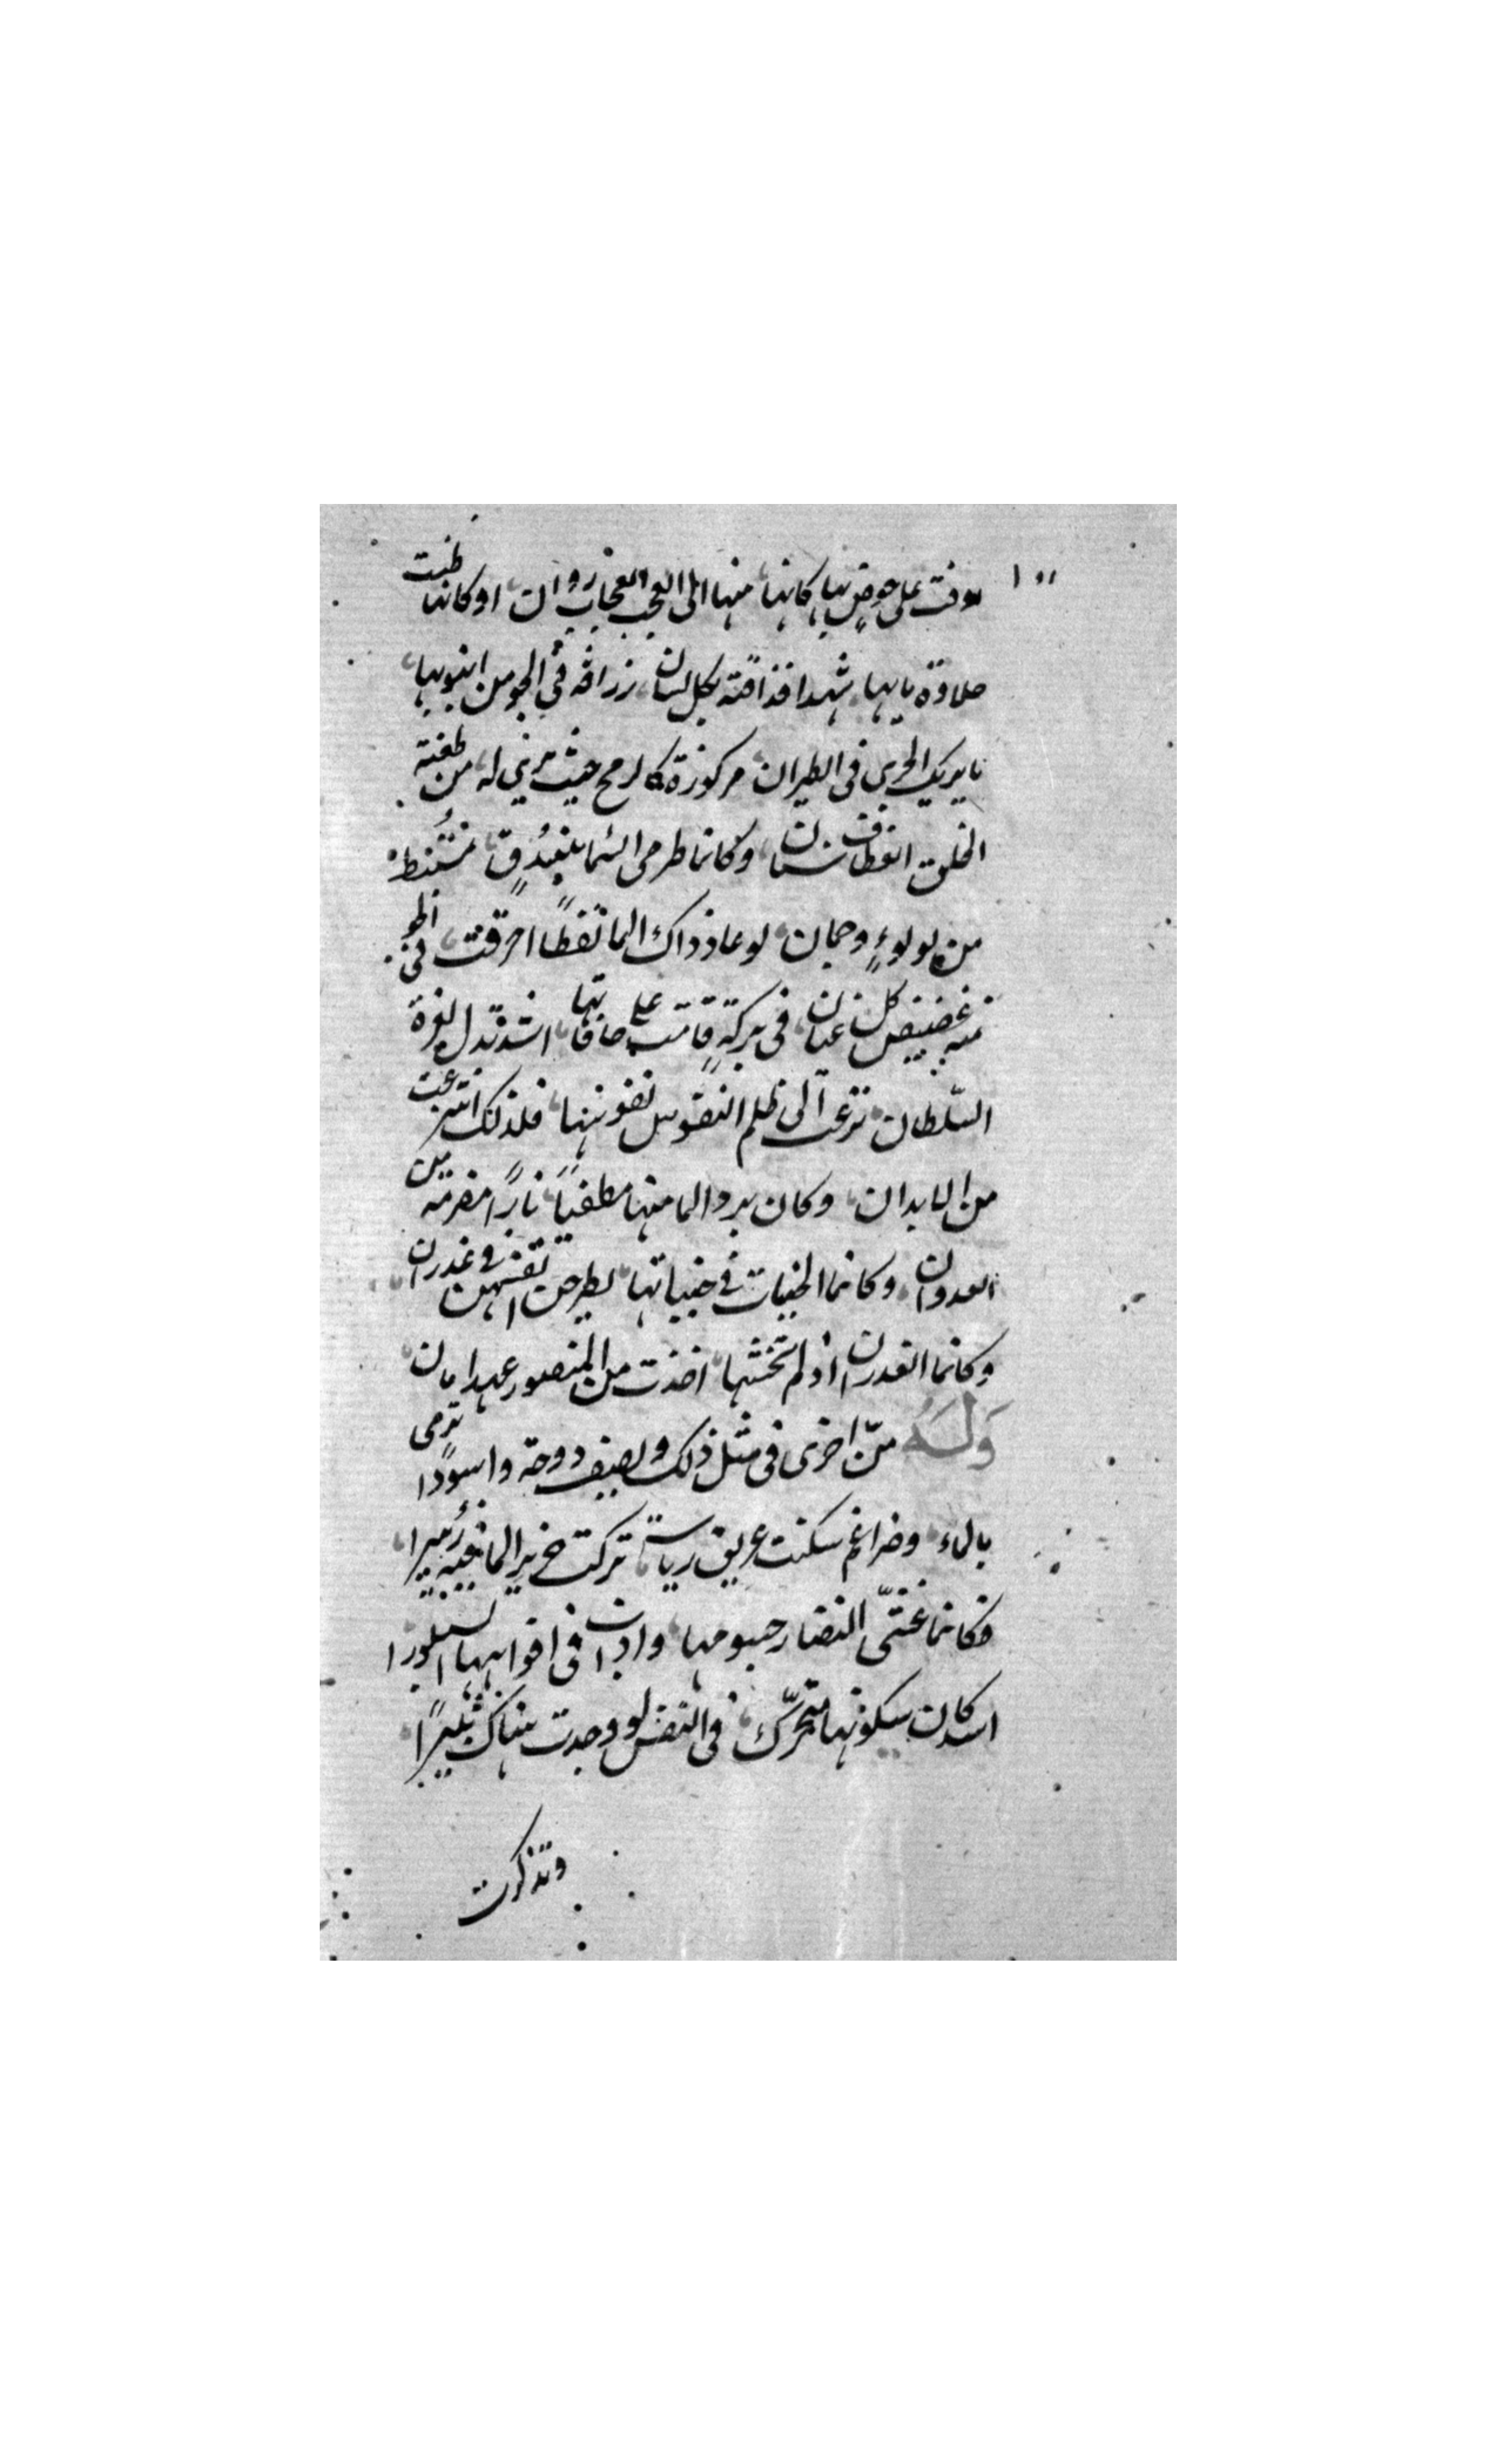 اوفت على حوض لها كانها منها الى العجب العجاب روان او كانها ظنت
حلاوة مايها شهدا فذاقته بكل لسان زرافة في الجو من انبوبها
ما يريك الجري في الطيران مركوزة كالرمح حيث ترى له من طعنة
الخلق انعطاف سنان وكانما طرمى السما ببندق مستنبط
من لولوء وجمان لو عاد ذاك الما نفطا احرقت في الجو
منه قميص كل عنان في بركة قامت على حافاتها اسد تذل لعزة
السلطان نزعت الى ظلم النفوس نفوسها فلذلك انتزعت
من الابدان وكان برد الما منها مطفيا نارا مضرمة من
العدوان وكانما الحيات في جنباتها يطرحن انفسهن في غدران
وكانما الغدران اذ لم تخشها اخذت من المنصور عهد امان
وله من اخرى في مثل ذلك ويصف دوحة واسودا ترمى
بالماء وضراغم سكنت عرين رياسة تركت خرير الما فيه زئيرا
فكانما غشى النضار جسومها واذاب في افواهها البلورا
اسد كان سكونها متحرك في النفس لو وجدت هناك مثيرا
وتذكرت